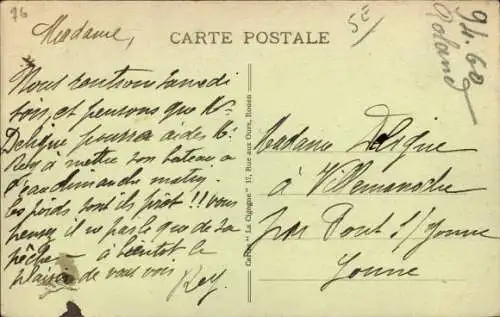 76
5F
94.60
Roland
CARTE POSTALE
Madame,
Nous rentrons samedi
soir et pensons que Mr
Deligne pourra aider Mr
Rey à mettre son bateau a
l'eau dimanche matin.
les pieds sont ils prêt !! Vous
pensez il ne parle que de sa
pêche — à bientôt le
plaisir de vous voir
Rey.
Cartes "La Cigogne" 17, Rue aux Ours, Rouen
Madame Deligne
à Villemanoche
par Pont s/ Yonne
Yonne